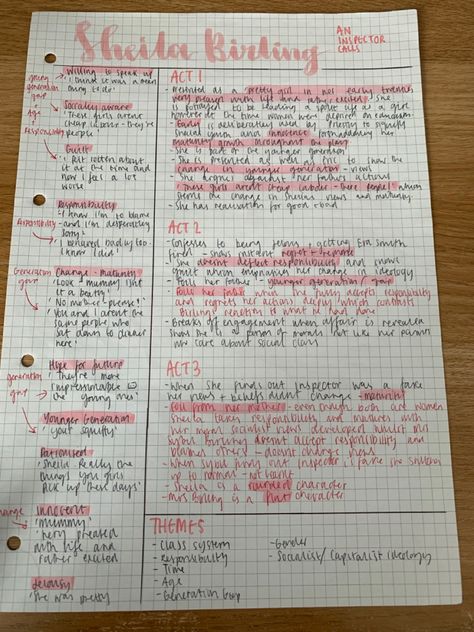 Sheila Birling
AN
INSPECTOR
CALLS
Willing to speak up
'I think it was a mean
thing to do'
young
generation
gap
+
Age
Responsibility
Socially aware
'These girls aren't
cheap labour - they're
people'
Guilt
'I felt rotten about
it at the time and
now I feel a lot
worse
Responsibility
'I know I'm to blame
- and I'm desperately
sorry'
'I behaved badly too
I know I did'
Responsibility
Generation
gap
Change - maturity
'Look - mummy isn't
it a beauty'
'No, mother - please!'
'You and I aren't the
same people who
sat down to dinner
here'
Hope for future
'They're more
impressionable
'the young ones'
generation
gap
Younger Generation
'your squiffy'
Patronised
'Sheila Really the
things you girls
pick up these days'
change
Innocent
'mummy'
'very pleased
with life and
rather excited
Jealousy
'she was pretty
ACT 1
- Presented as a 'pretty girl in her early twenties,
very pleased with life and rather excited'. She
is portrayed to be leading a spoilt life as a girl
however at the time women were deprived an education
- 'Early' is deliberately used by Priestly to signify
Sheila's youth and innocence foreshadowing her
maturity growth throughout the play
- She is part of the younger generation
- She is presented as well as Eric to show the
change in younger generation - views
- She argues against her fathers actions
- 'These girls aren't cheap labour - there people' whom
shows the change in Sheilas views and maturity
- She has realisation for good + bad
ACT 2
- Confesses to being jealous + getting Eva Smith
fired - shows instant regret + remorse
- She doesnt deflect responsibility and shows
guilt which emphasises her change in ideology
- Foils her father - younger generation / gap
- Foils her father when she fully accepts responsibility
and regrets her actions deeply which contrasts
Birling's reaction to what he had done
- Breaks off engagement when affair is revealed
Shows she is a person of morals not like her parents
who care about social class
ACT 3
- When she finds out Inspector was a fake
her views + beliefs didn't change - maturity
- Foil from her mother - even though both are women
Sheila takes responsibility and matures with
her moral socialist views developed whilst Mrs
Sybil Birling doesnt accept responsibility and
blames others - doesnt change views
- When Sybil finds out inspector is fake she switches
up to normal - not guilt
- Sheila is a rounded character
- Mrs Birling is a flat character
THEMES
- Class system
- Responsibility
- Time
- Age
- Generation Gap
- Gender
- Socialist / Capitalist ideologies